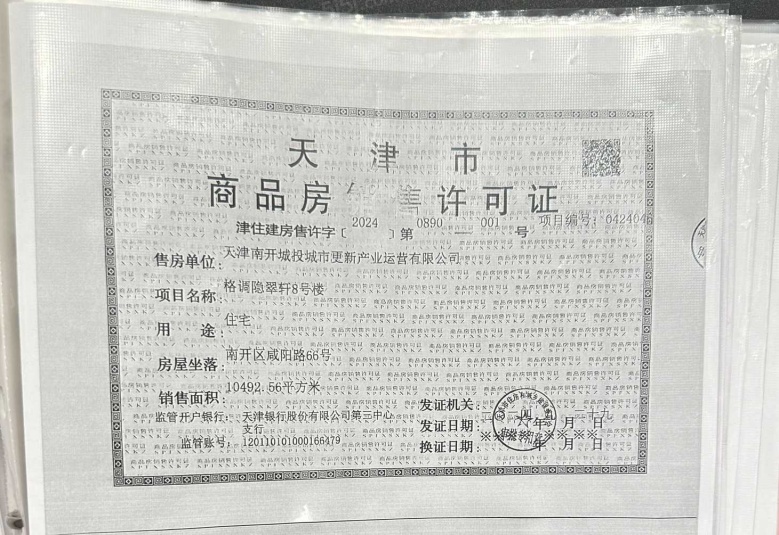 天津市
商品房 售许可证
津住建房售许字〔2024〕第0890-001号 项目编号：042404
售房单位：天津南开城投城市更新产业运营有限公司
项目名称：格调隐翠轩8号楼
用途：住宅
房屋坐落：南开区咸阳路66号
销售面积：10492.56平方米
监管开户银行：天津银行股份有限公司第三中心支行
监管账号：120110101000166479
发证机关：
发证日期： 年 月 日
※※※ ※※※※
换证日期： 年 月 日